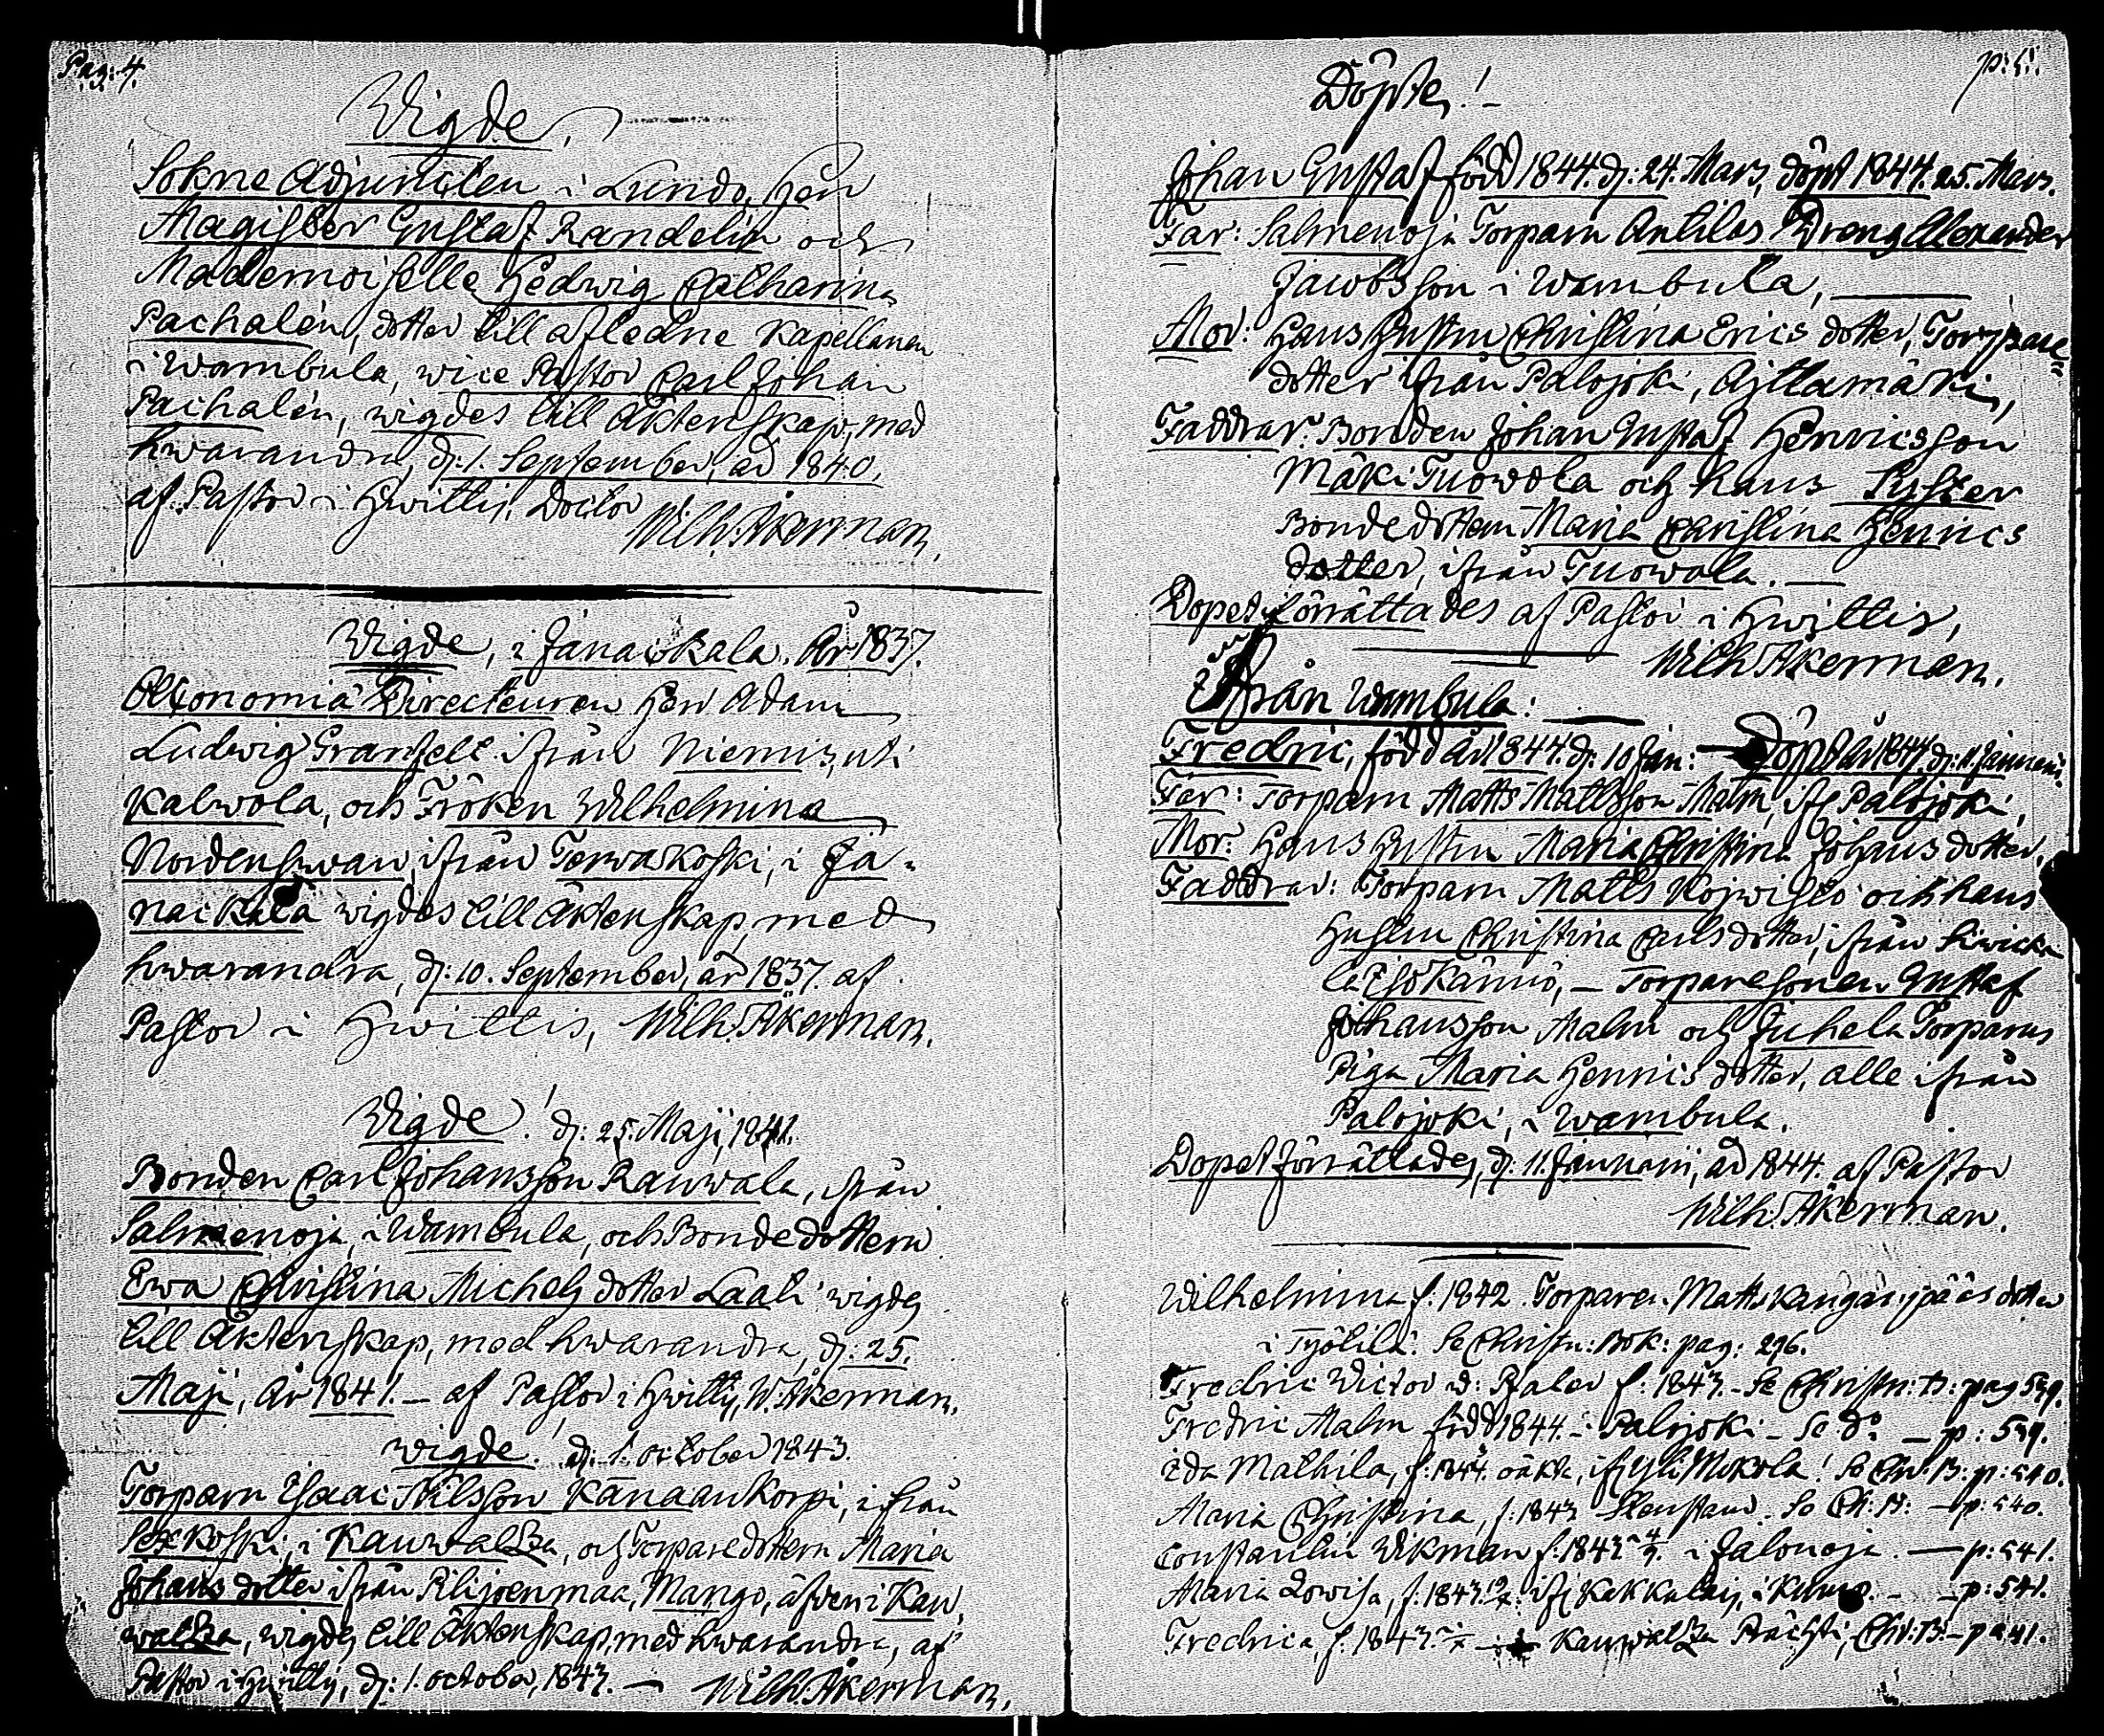 Pag: 4.
Wigde,
Sokne Adjuncten i Lundo, Herr
Magister Gustaf Randelin och
Mademoiselle Hedwig Catharina
Pachalén, dotter till afledne Kapellanen
i Wambula, wice Pastor Carl Johan
Pachalén, wigdes till Äktenskap, med
hwarandra, d: 1. September, år 1840,
af Pastor i Hwittis, Doctor
Wilh: Åkerman,
Wigde, i Janackala. År 1837.
Oeconomiæ Directeuren Herr Adam
Ludwig Granfelt ifrån Niemis, uti
Kalwola, och Fröken Wilhelmina
Nordenswan, ifrån Terwakoski, i Ja-
nackala wigdes till Äktenskap, med
hwarandra, d: 10. September, år 1837. af
Pastor i Hwittis, Wilh: Åkerman.
Wigde! d: 25. Maji, 1841.
Bonden Carl Johansson Rauwala, ifrån
Salmenoja, i Wambula, och Bondedottern
Ewa Christina Michels dotter Laati wigdes
till Äktenskap, med hwarandra, d: 25.
Maji, År 1841. – af Pastor i Hwittis, W. Åkerman.
Wigde! d: 1. October 1843.
Torparn Isaac Nilsson Kanaankorpi, ifrån
Sexkoski, i Kauwatsa, och Torparedottern Maria
Johans dotter ifrån Pilijoenmaa, Mango, äfven i Kau-
watsa, wigdes till Äktenskap, med hwarandra, af
Pastor i Hwittis, d: 1. October, 1843. — Wilh: Åkerman,
p: 5.
Döpte! –
Johan Gustaf född 1844. d: 24. Mars, döpt 1844. 25. Mars.
Far: Salmenoja Torparn Antilas Dreng Alexander
Jacobsson i Wambula, —
Mor: Hans Hustru Christina Erics dotter, Torpare
dotter ifrån Palojoki, Äjtlamäki,
Faddrar: Bonden Johan Gustaf Henricsson
Mäki Tuowola och hans Syster
Bondedottern Maria Christina Henrics
dotter, ifrån Tuowola. —
Dopet förrättades af Pastor i Hwittis,
Wilh: Åkerman.
Ifrån Wambula: —
Fredric, född År 1844. d: 10 Jan: — Döpt År 1844. d: 11. Januarii.
Far: Torparn Matts Mattsson Malm, ifr Palojoki,
Mor: Hans Hustru Maria Christina Johans dotter,
Faddrar: Torparn Matts Kojwisto och hans
Hustru Christina Carls dotter, ifrån
Isokännö, – Torparesonen Gustaf
Johansson Malm och Juhela Torparns
Piga Maria Henrics dotter, alle ifrån
Palojoki, i Wambula.
Dopet förrättades, d: 11. Januarii, år 1844. af Pastor
Wilh: Åkerman.
Wilhelmina f. 1842. Torparen Matts Kangas dotter
i Työtilä. Se Christn: Bok: pag: 296.
Fredric Wictor f. 1843. – Se Christn: B: pag 539.
Fredric Malm född 1844. – Palojoki – Se d:o – p: 539.
Ida Mathila, f. 1844. oäkta, ifr Yli Mikola! Se Chr: B: p: 540.
Maria Christina, f: 1843 Se Ch: B: – p: 540.
Constantin Wikman f. 1843 i Jalonoja. — p: 541.
Maria Lowisa, f. 1843. – p: 541.
Fredrica, f. 1843. Kauwatsa Chr: B: – p 541.